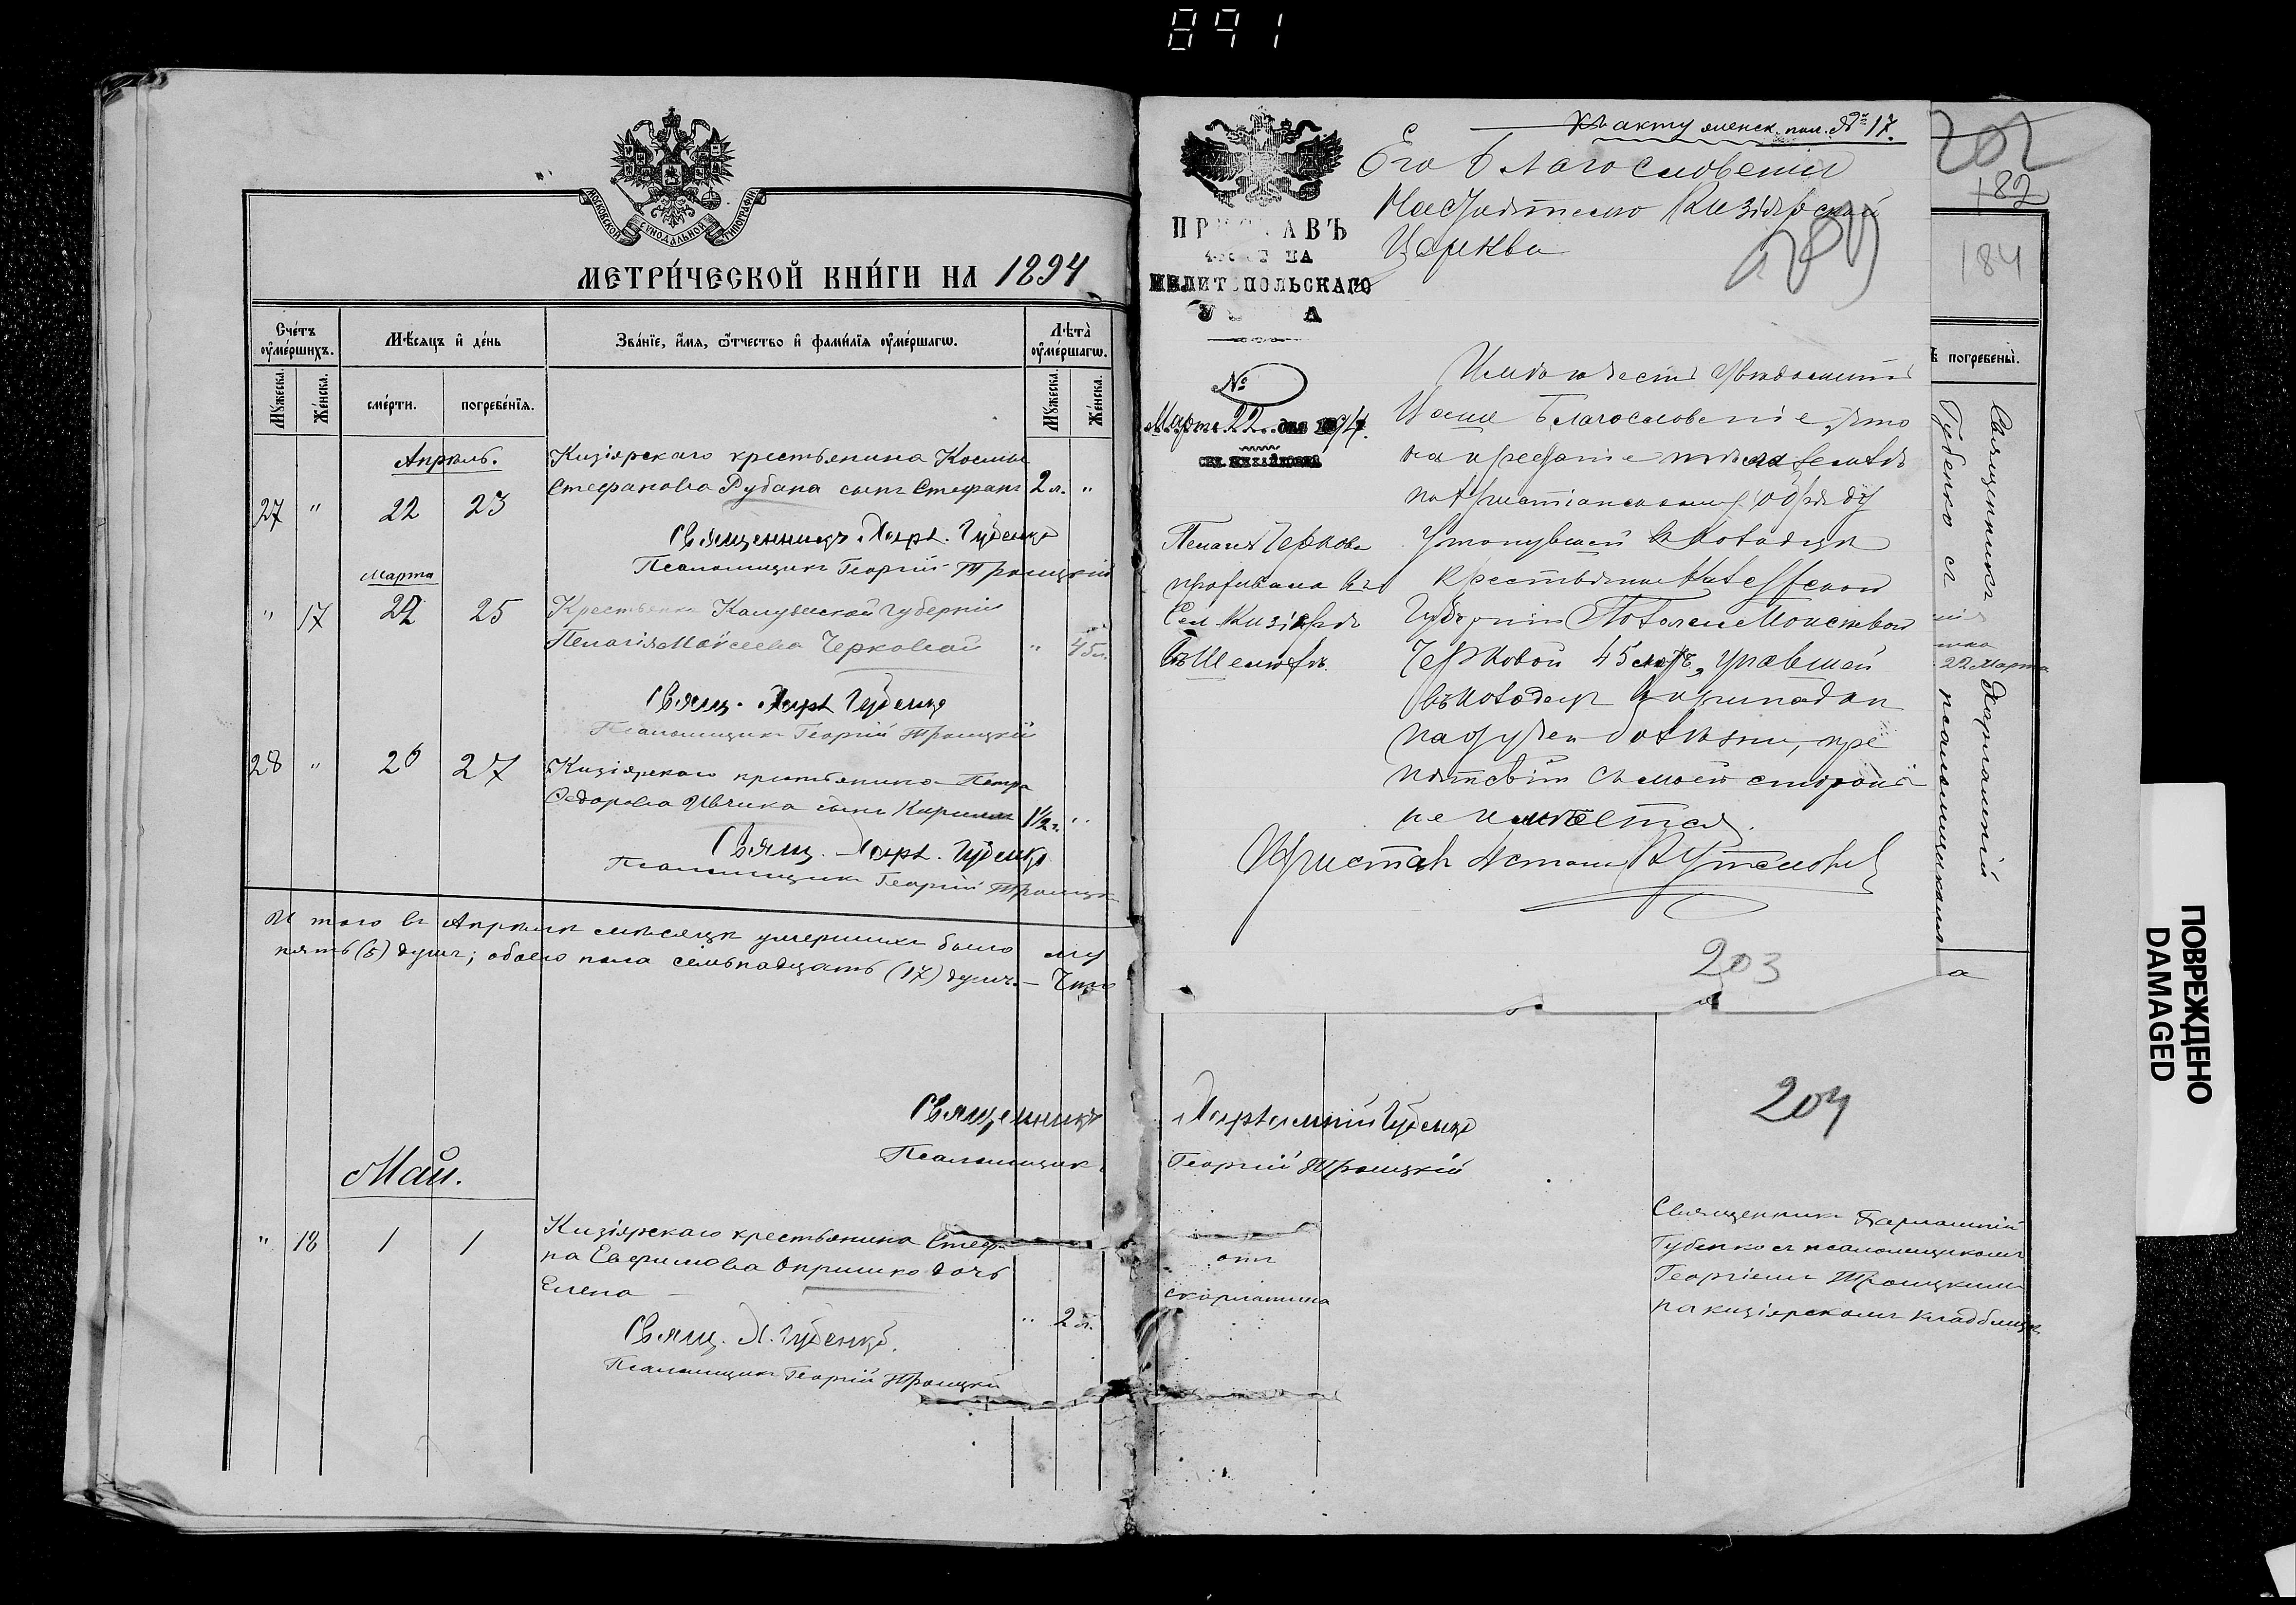 891
МОСКОВСКОЙ СѴНОДАЛЬНОЙ ТИПОГРАФІИ
МЕТРИ́ЧЕСКОЙ КНИ́ГИ НА 1894
Сче́тъ оумершихъ.
Мѣсяцъ и де́нь
Зва́нїе, и́мя, ѿтчество и фами́лїя оуме́ршагѡ.
Лѣта̀ оуме́ршагѡ.
Мужеска.
Же́нска.
сме́рти.
погребе́нїя.
Мужеска.
Же́нска.
Апрѣль.
Кизіярскаго крестьянина Космы
27 " 22 23 Стефанова Рубана сынъ Стефанъ 2 л. "
Священникъ Харл. Губенко
Псаломщикъ Георгій Троицкій
Марта
" 17 22 25 Крестьянка Калужской губерніи
Пелагія Моисеева Черковой " 45 л.
Свящ. Харл Губенко
Псаломщикъ Георгій Троицкій
28 " 26 27 Кизіярскаго крестьянина Петра
Федорова Ивчика сынъ Кириллъ 1½ г. "
Свящ. Харл. Губенко
Псаломщикъ Георгій Троицкій
Итого въ Апрѣлѣ мѣсяцѣ умершихъ было му
пять (5) душъ; обоего пола семьнадцать (17) душъ.— Что
Священникъ Харлампій Губенко
Псаломщикъ Георгій Троицкій
Май.
" 18 1 1 Кизіярскаго крестьянина Стефа-
на Евфимова Опришко дочь
Елена " 2 л.
Свящ. Х. Губенко.
Псаломщикъ Георгій Троицкій
отъ
скарлатина
Священникъ Харлампій
Губенко съ псаломщикомъ
Георгіемъ Троицкимъ
на кизіярскомъ кладбищѣ
204
Къ акту женск. пол. № 17.
ПРИСТАВЪ
МЕЛИТОПОЛЬСКАГО
№
Марта 22 дня 1894.
Его Благословенія
Настоятелю Кизіярской
Церкви
Имѣю честь увѣдомить
Ваше Благословеніе, что
на преданіе тѣла землѣ
по христіанскому обряду
утонувшей въ колодцѣ
крестьянки Калужской
Губерніи Пелагеи Моисѣевой
Черковой 45 лѣтъ, упавшей
въ колодецъ въ припадкѣ
падучей болѣзни, пре
пятствій съ моей стороны
не имѣется.
Приставъ
Пелагея Черкова
проживала въ
Сел Кизіярѣ
203
202
182
184
погребены̀.
Священникъ Харлампій
Губенко съ псаломщикомъ
22 Марта
ПОВРЕЖДЕНО
DAMAGED